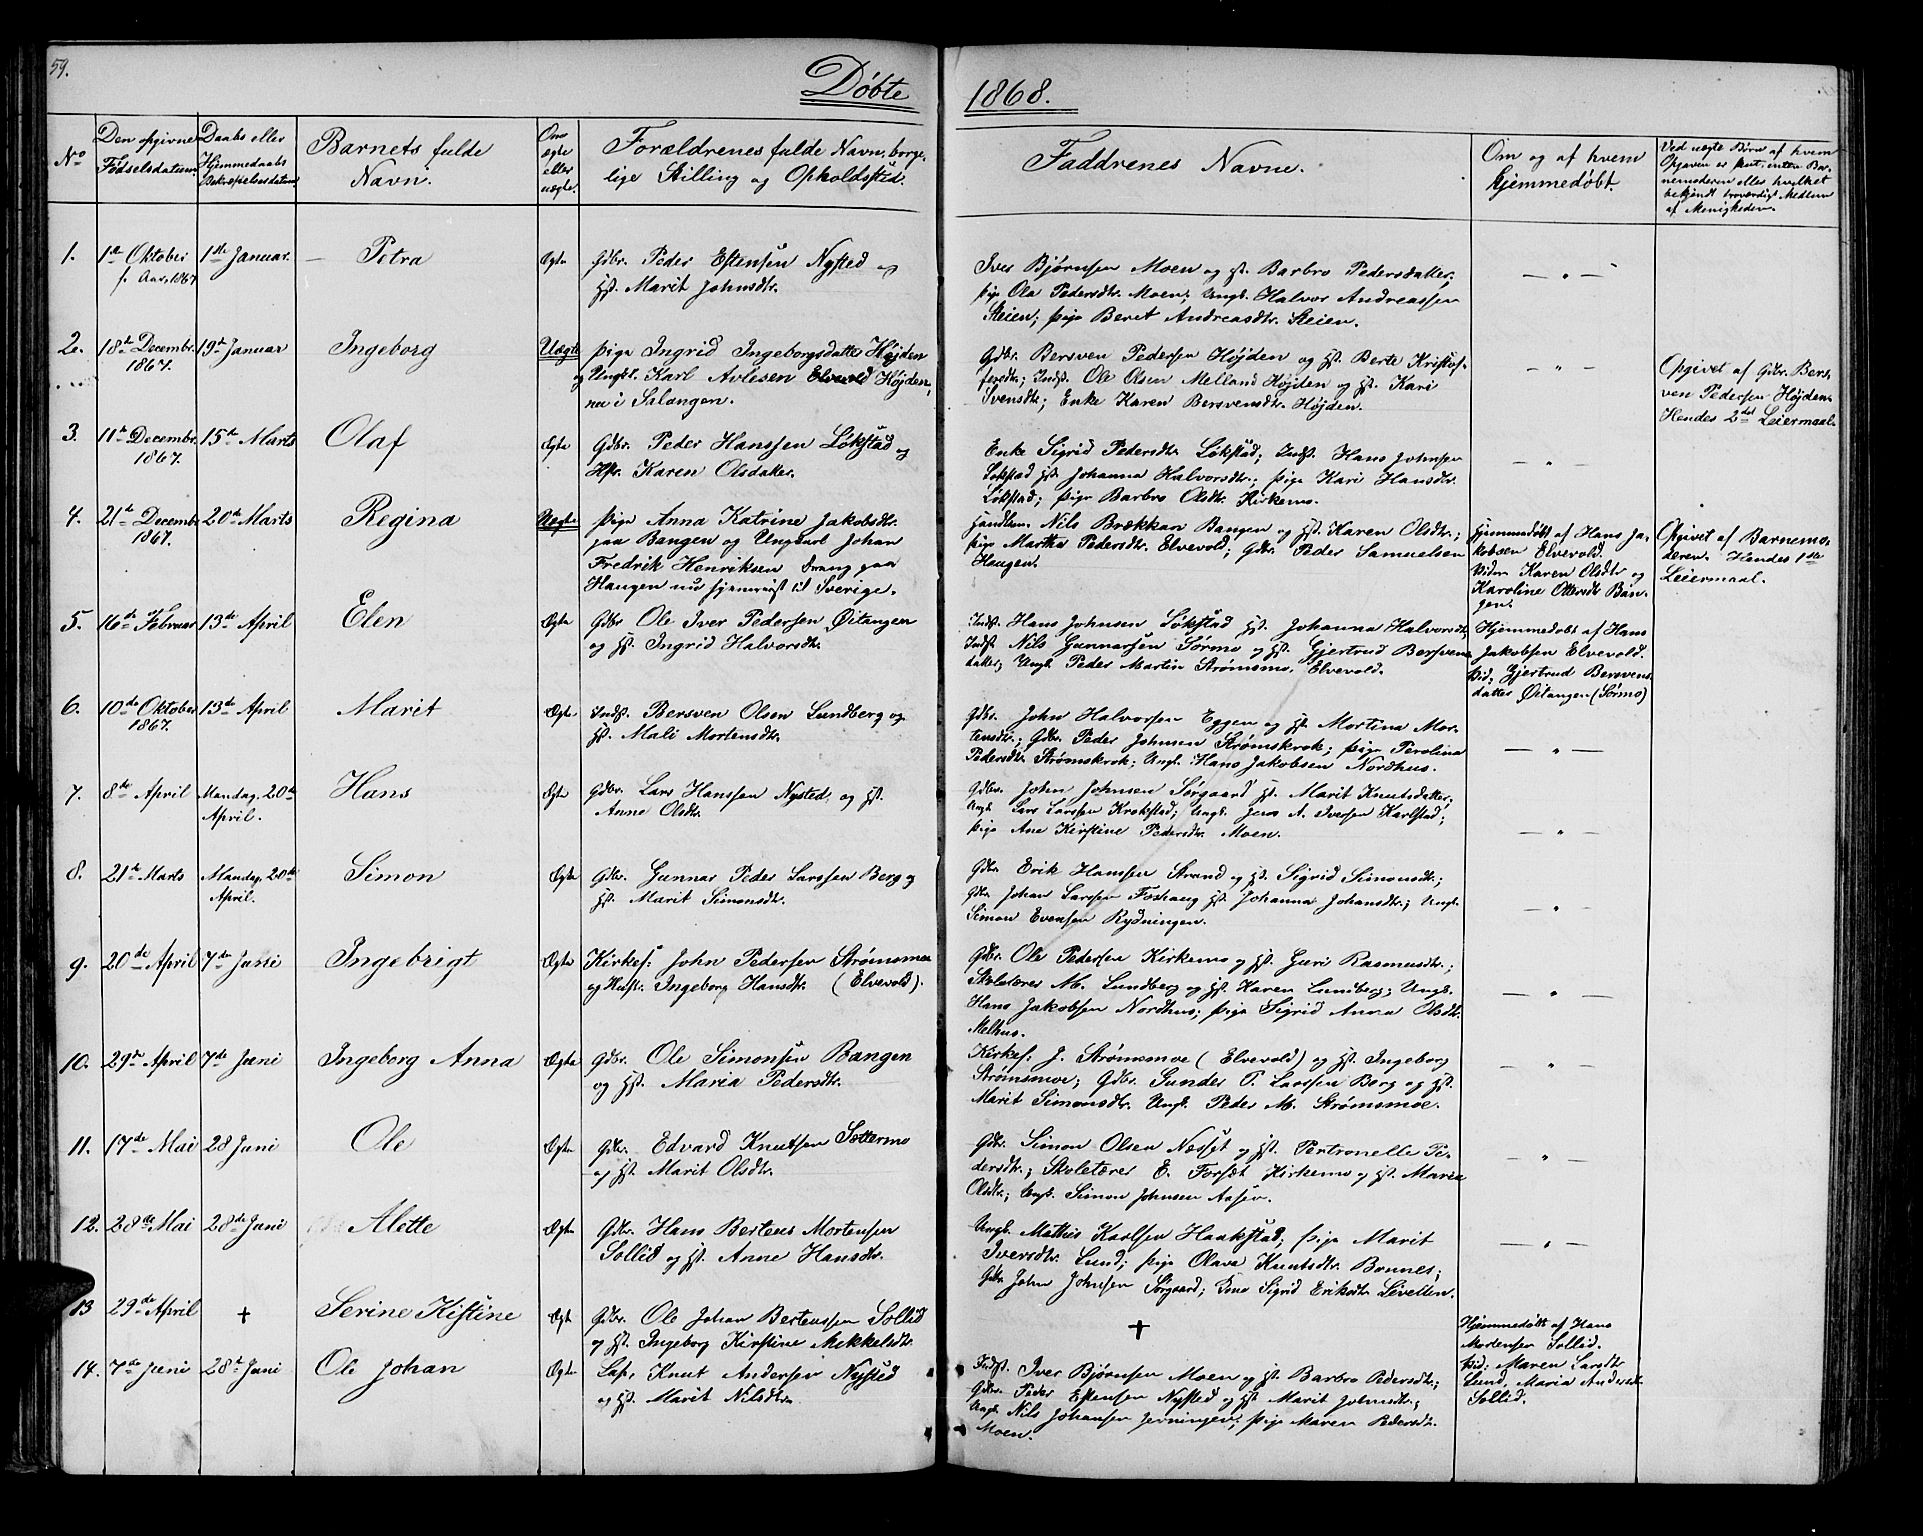 59.
Døbte 1868.
No
Den opgivne Fødselsdatum
Daabs eller Hjemmedaabs Bekræftelsesdatum
Barnets fulde Navn.
Om ægte eller uægte.
Forældrenes fulde Navn, borgelige Stilling og Opholdssted.
Faddrenes Navne.
Om og af hvem hjemmedøbt.
Ved uægte Børn af hvem Opgaven er skeet, enten Barnemoderen eller hvilket bekjendt troværdigt Medlem af Menigheden.
1. 1ste Oktober f. Aar, 1867 1ste Januar. Petra Ægte
Gdbr. Peder Estensen Nysted og
Hst. Marit Johnsdtr.
Iver Bjørnsen Moen og Hst. Barbro Pedersdatter;
Pige Ola Pedersdtr. Moen; Ungk. Halvor Andreassen
Steien; Pige Beret Andreasdtr. Steien.
— " —
2. 18de Decembr. 1867. 19de Januar Ingeborg Uægte
Pige Ingrid Ingeborgsdatter Højden
og Ungk. Karl Avlesen Elvevold Højden,
nu i Salangen.
Gdbr. Bersven Pedersen Højden og Hst. Berte Kristof-
fersdtr.; Indst. Ole Olsen Melland Højden og Hst. Kari
Svensdtr; Enke Karen Bersvensdtr. Højden.
— " —
Opgivet af Gdbr. Bers-
ven Pedersen Højden.
Hendes 2det Leiermaal.
3. 11te Decembr. 1867. 15de Marts Olaf Ægte
Gdbr. Peder Hanssen Løkstad og
Hst. Karen Olsdatter.
Enke Sigrid Pedersdtr. Løkstad; Indst. Hans Johnsen
Løkstad Hst. Johanna Halvorsdtr.; Pige Kari Hansdtr.
Løkstad; Pige Barbro Olsdtr. Kirkemo.
— " —
4. 21de Decembr 1867. 20de Marts Regina Uægte
Pige Anna Katrine Jakobsdtr.
paa Bangen og Ungkarl Johan
Fredrik Henriksen Dreng paa
Haugen nu hjemreist til Sverige.
Handlsm. Nils Brækkan Bangen og Hst. Karen Olsdtr.;
Pige Martha Pedersdtr. Elvevold; Gdbr. Peder Samuelsen
Haugen.
Hjemmedøbt af Hans Ja-
kobsen Elvevold.
Vidner Karen Olsdtr og
Karoline Ottersdtr Ban-
gen.
Opgivet af Barnemo-
deren. Hendes 1ste
Leiermaal.
5. 16de Februar 13de April Elen Ægte
Gdbr Ole Iver Pedersen Øitangen
og Hst. Ingrid Halvorsdtr.
Indst. Hans Johnsen Løkstad Hst. Johanna Halvorsdtr,
Indst. Nils Gunnarsen Sørmo og Hst. Gjertrud Bersvens
datter; Ungk. Peder Martin Strømsmo, Elvevold.
Hjemmedøbt af Hans
Jakobsen Elvevold.
Vid. Gjertrud Bersvens
datter Øitangen (Sørmo)
6. 10de Oktober 1867. 13de April Marit Ægte
Indst. Bersven Olsen Lundberg og
Hst. Mali Mortensdtr.
Gdbr. John Halvorsen Eggen og Hst. Martina Mor-
tensdtr.; Gdbr. Peder Johnsen Strømskrok; Pige Perolina
Pedersdtr Strømskrok; Ungk. Hans Jakobsen Nordhus.
— " —
7. 8de April Mandag. 20de April. Hans Ægte
Gdbr. Lars Hanssen Nysted, og Hst.
Anne Olsdtr.
Gdbr. John Johnsen Sørgaard Hst. Marit Knutsdatter;
Ungk. Lars Larssen Krokstad; Ungk. Jens A. Iversen Karlstad;
Pige Ane Kirstine Pedersdtr. Moen.
— " —
8. 21de Marts Mandag. 20de April. Simon Ægte
Gdbr. Gunnar Peder Larssen Berg og
Hst. Marit Simonsdtr.
Gdbr Erik Hansen Strand og Hst. Sigrid Simonsdtr.;
Gdbr Johan Larssen Foshaug Hst. Johanna Johansdtr.; Ungk.
Simon Evensen Rydningen.
— " —
9. 20de April 7de Juni Ingebrigt Ægte
Kirkes: John Pedersen Strømsmoe
og Hustr. Ingeborg Hansdtr. (Elvevold).
Gdbr. Ole Pedersen Kirkemo og Hst. Guri Rasmusdtr.;
Skolelærer M. Lundberg og Hst. Karen Lundberg; Ungk.
Hans Jakobsen Nordhus; Pige Sigrid Anna Olsdtr.
Melhus.
— " —
10. 29de April 7de Juni Ingeborg Anna Ægte
Gdbr. Ole Simonsen Bangen
og Hst. Maria Pedersdtr.
Kirkes: J. Strømsmoe (Elvevold) og Hst. Ingeborg
Strømsmoe; Gdbr. Gunder P. Larssen Berg og Hst.
Marit Simonsdtr. Ungk. Peder M. Strømsmoe.
— " —
11. 17de Mai 28 Juni Ole Ægte
Gdbr. Edvard Knutsen Sættermo
og Hst. Marit Olsdtr.
Gdbr. Simon Olsen Nesset og Hst. Pertronelle Pe-
dersdtr.; Skolelærer E. Forset Kirkemo og Hst. Maria
Olsdtr.; Ungk. Simon Johnsen Aasen.
— " —
12. 28de Mai 28de Juni Alette Ægte
Gdbr. Hans Berteus Mortensen
Sollid og Hst. Anne Hansdtr.
Ungk. Mathis Karlsen Haakstad; Pige Marit
Iversdtr. Lund; Pige Olava Knutsdtr. Bonnes;
Gdbr John Johnsen Sørgaard; Kone Sigrid Eriksdtr Livelten.
— " —
13 29de April + Serine Kistine Ægte
Gdbr. Ole Johan Berteussen Sollid
og Hst. Ingeborg Kirstine Mikkelsdtr.
+
Hjemmedøbt af Hans
Mortensen Sollid.
Vid: Maren Larsdtr
Lund, Maria Andersdtr
Sollid.
14. 7de Juni 28de Juni Ole Johan Ægte
Lap, Knut Andersen Nysted
og Hst. Marit Nilsdtr.
Indst. Iver Bjørnsen Moen og Hst. Barbro Pedersdtr.;
Gdbr. Peder Estensen Nysted og Hst. Marit Johnsdtr.;
Ungk. Nils Johansen Jevningen; Pige Maren Pedersdtr.
Moen.